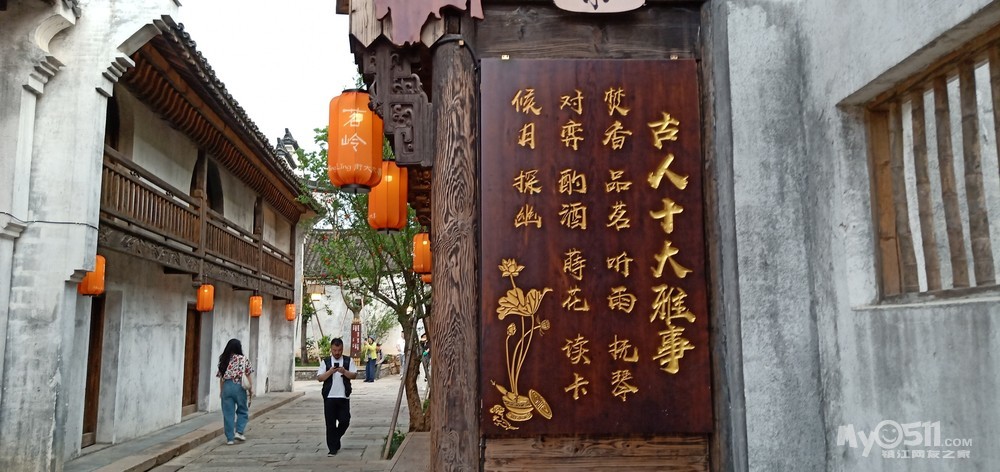 古人十大雅事
焚香 品茗 听雨 抚琴
对弈 酌酒 莳花 读卡
候月 探幽
My0511.com
镇江网友之家